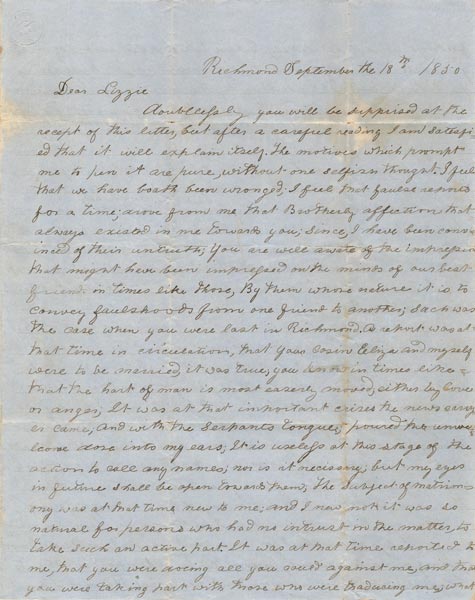 Richmond September the 18th 1850
Dear Lizzie
doubtlessly you will be supprised at the
recept of this letter, but after a careful reading I am satisfi
ed that it will explain itself. The motives which prompt
me to pen it are pure, without one selfish thought. I feel
that we have boath been wronged; I feel that faulse reports
for a time; drove from me that Brotherly affection that
always existed in me towards you; Since, I have been conv
inced of their untruth; You are well aware of the impression
that moght have been impressed on the minds of our best
friends in times like those, By them whose nature it is to
convey faulshoods from one friend to another; Such was
the case when you were last in Richmond, a report was at
that time in circulation, that your cosin Eliza and myself
were to be married, it was true, you know in times like
that the hart of man is most easerly moved, either by love
or anger; It was at that important crises the news carry
er came, And with the Serpants tongue, poured the unwe
lcome dose into my ears, It is useless at this stage of the
action to call any names, nor is it necessary, but my eyes
in future shall be open towards them; The Subject of matrim
ony was at that time new to me; and I now not it was so
natural for persons who had no intrust in the matter, to
take such an active part. It was at that time reported to
me, that you were doing all you could against me, And that
you were taking part with those who were traducing me, who